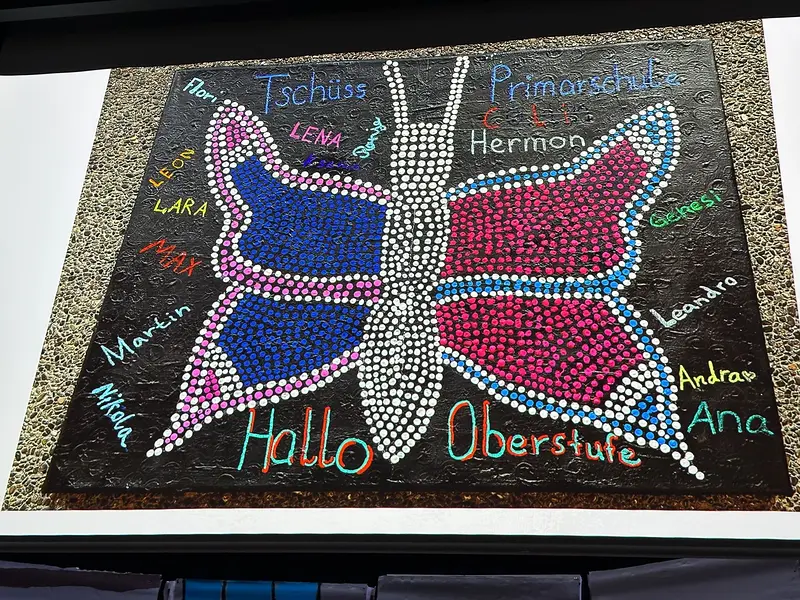 Flori
Tschüss
Primarschule
LENA
Hermon
LEON
LARA
Geresi
MAX
Leandro
Martin
Andra
Nikola
Ana
Hallo
Oberstufe